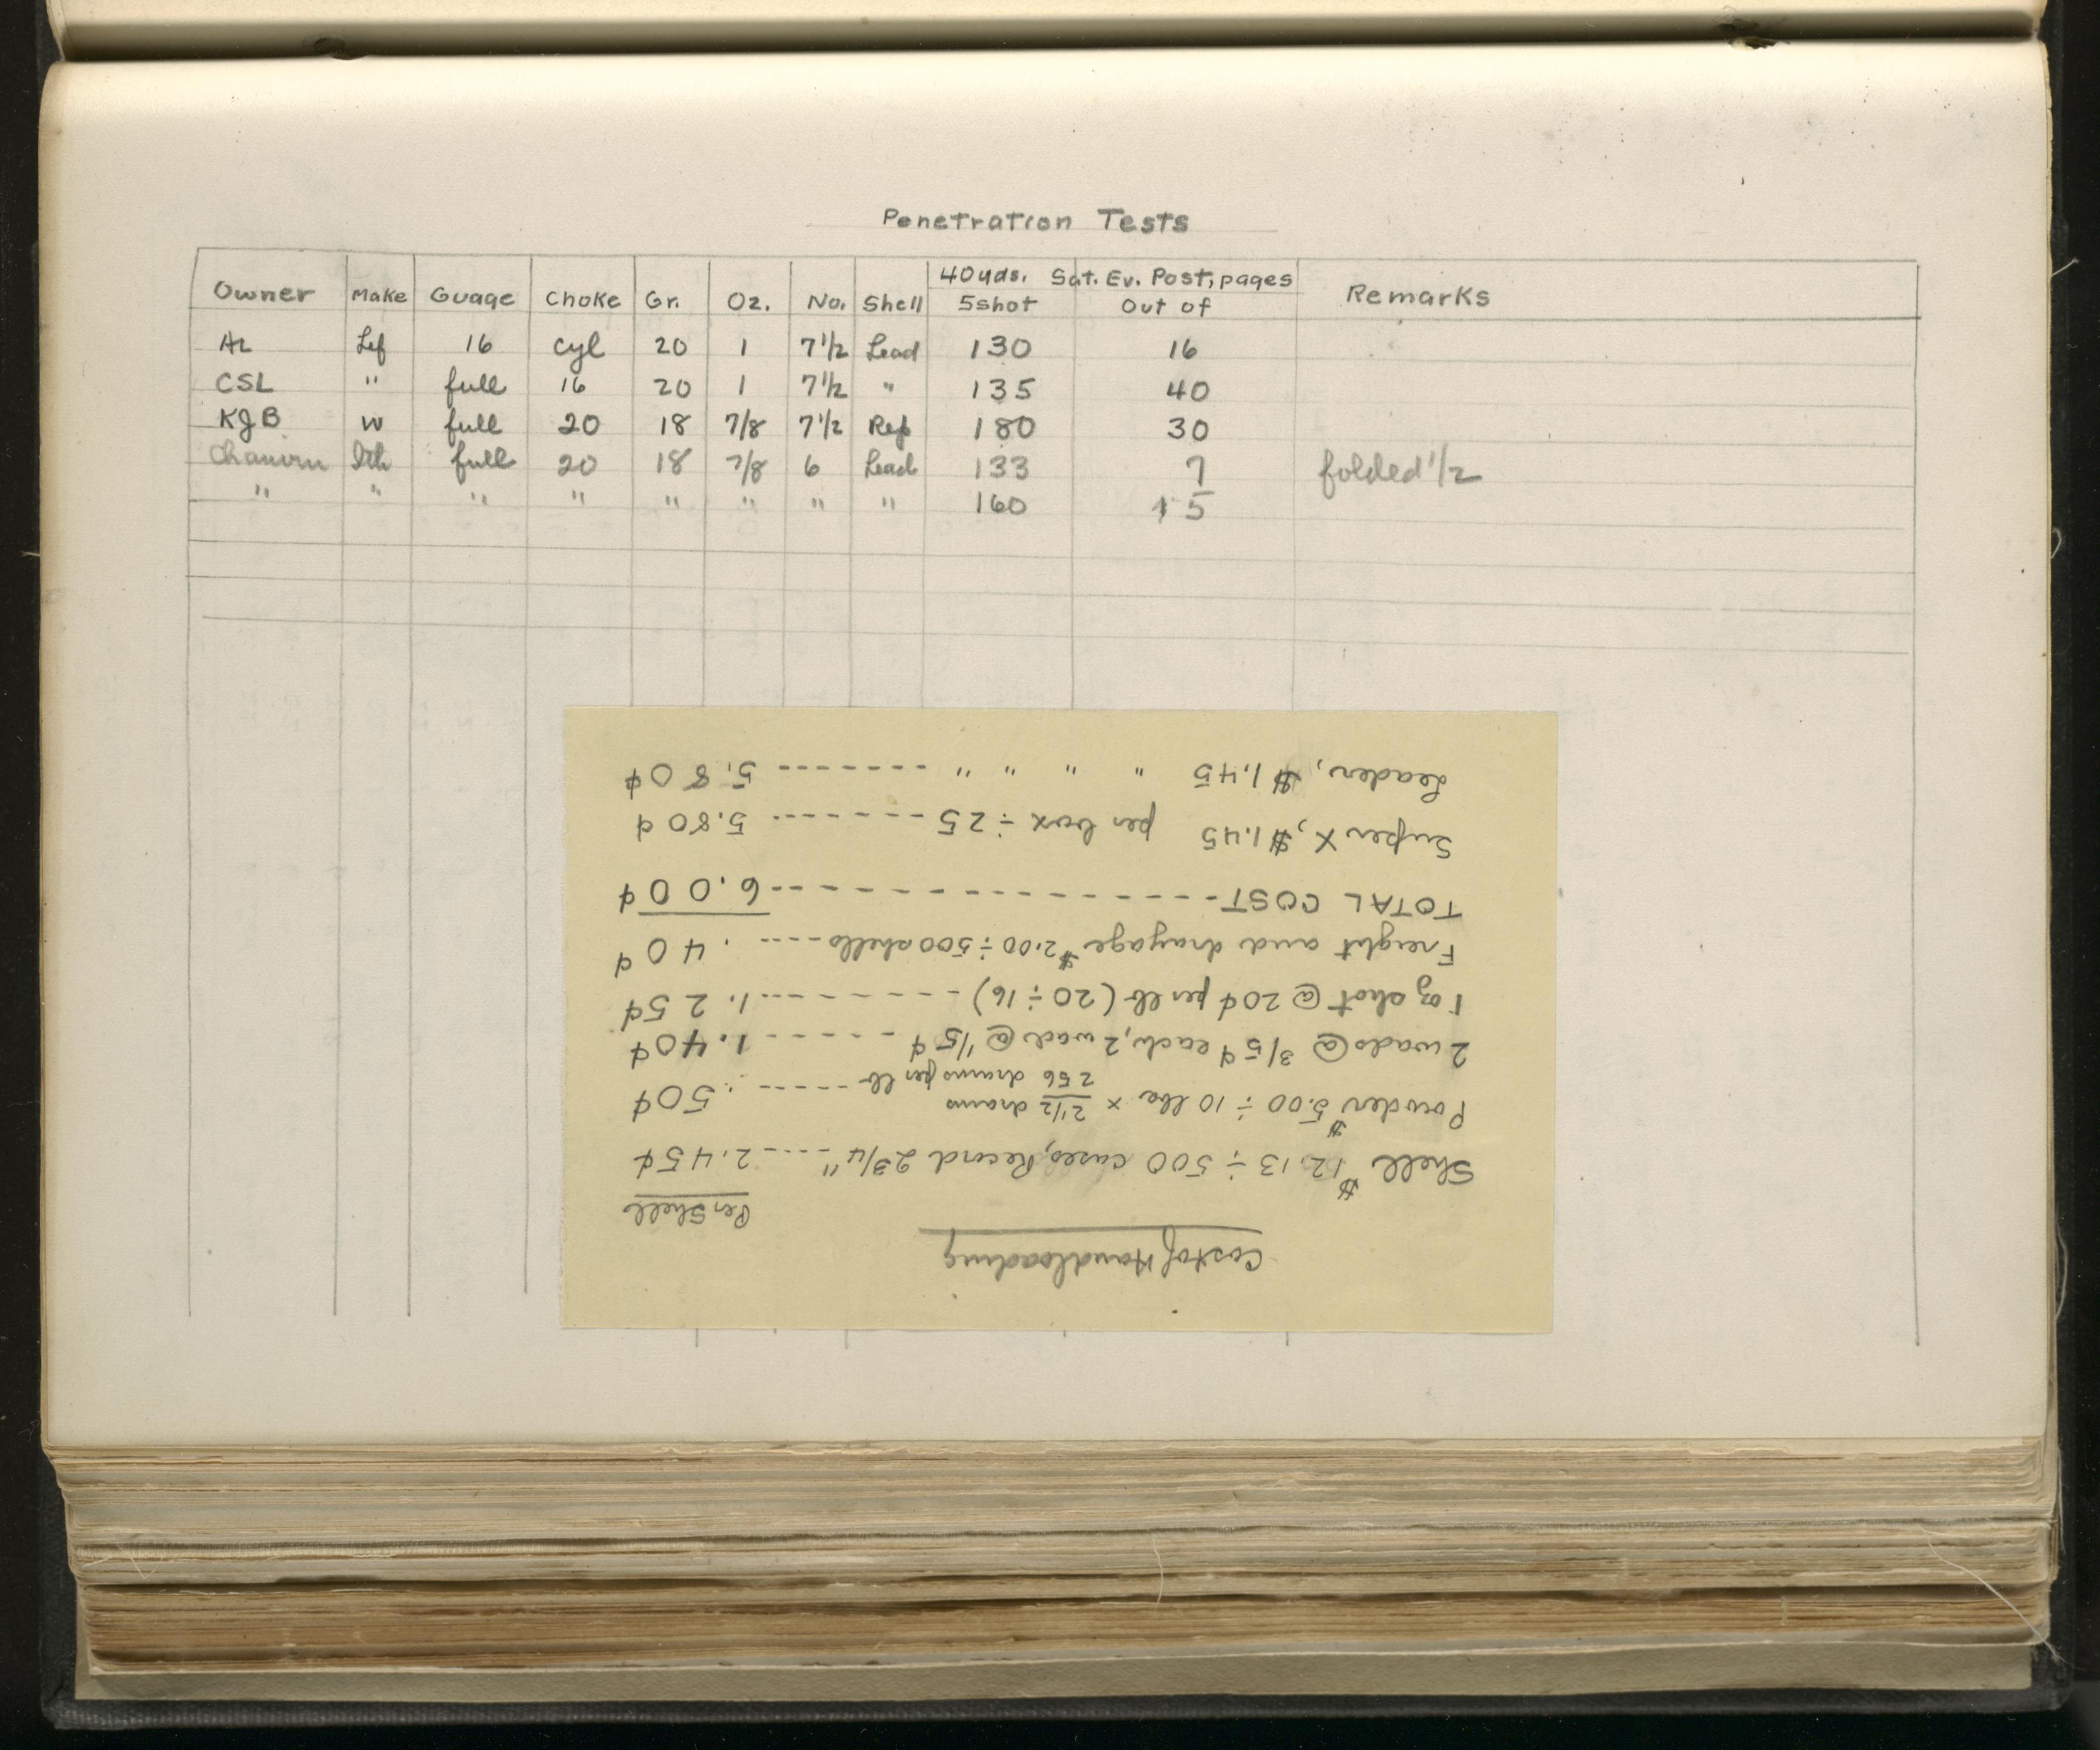 Penetration Tests
Owner Make Guage Choke Gr. Oz. No. Shell 40 yds. 5 shot Sat. Ev. Post, pages Out of Remarks
AL Lef 16 cyl 20 1 7 1/2 Lead 130 16
CSL " full 16 20 1 7 1/2 " 135 40
KJB W full 20 18 7/8 7 1/2 Rep 180 30
Ith full 20 18 7/8 6 Lead 133 7 folded 1/2
" " " " " " " " 160 15
Cost of Handloading
Per Shell
Shell $12.13 ÷ 500 cases, Record 2 3/4" ---- 2.45¢
Powder $5.00 ÷ 10 lbs × 2 1/2 drams / 256 drams per lb ----- .50¢
2 wads @ 3/5¢ each, 2 wad @ 1/5¢ ------ 1.40¢
1 oz shot @ 20¢ per lb (20 ÷ 16) -------- 1.25¢
Freight and drayage $2.00 ÷ 500 shells ---- .40¢
TOTAL COST ---------------- 6.00¢
Super X, $1.45 per box ÷ 25 --------- 5.80¢
Leader, $1.45 " " " " -------- 5.80¢